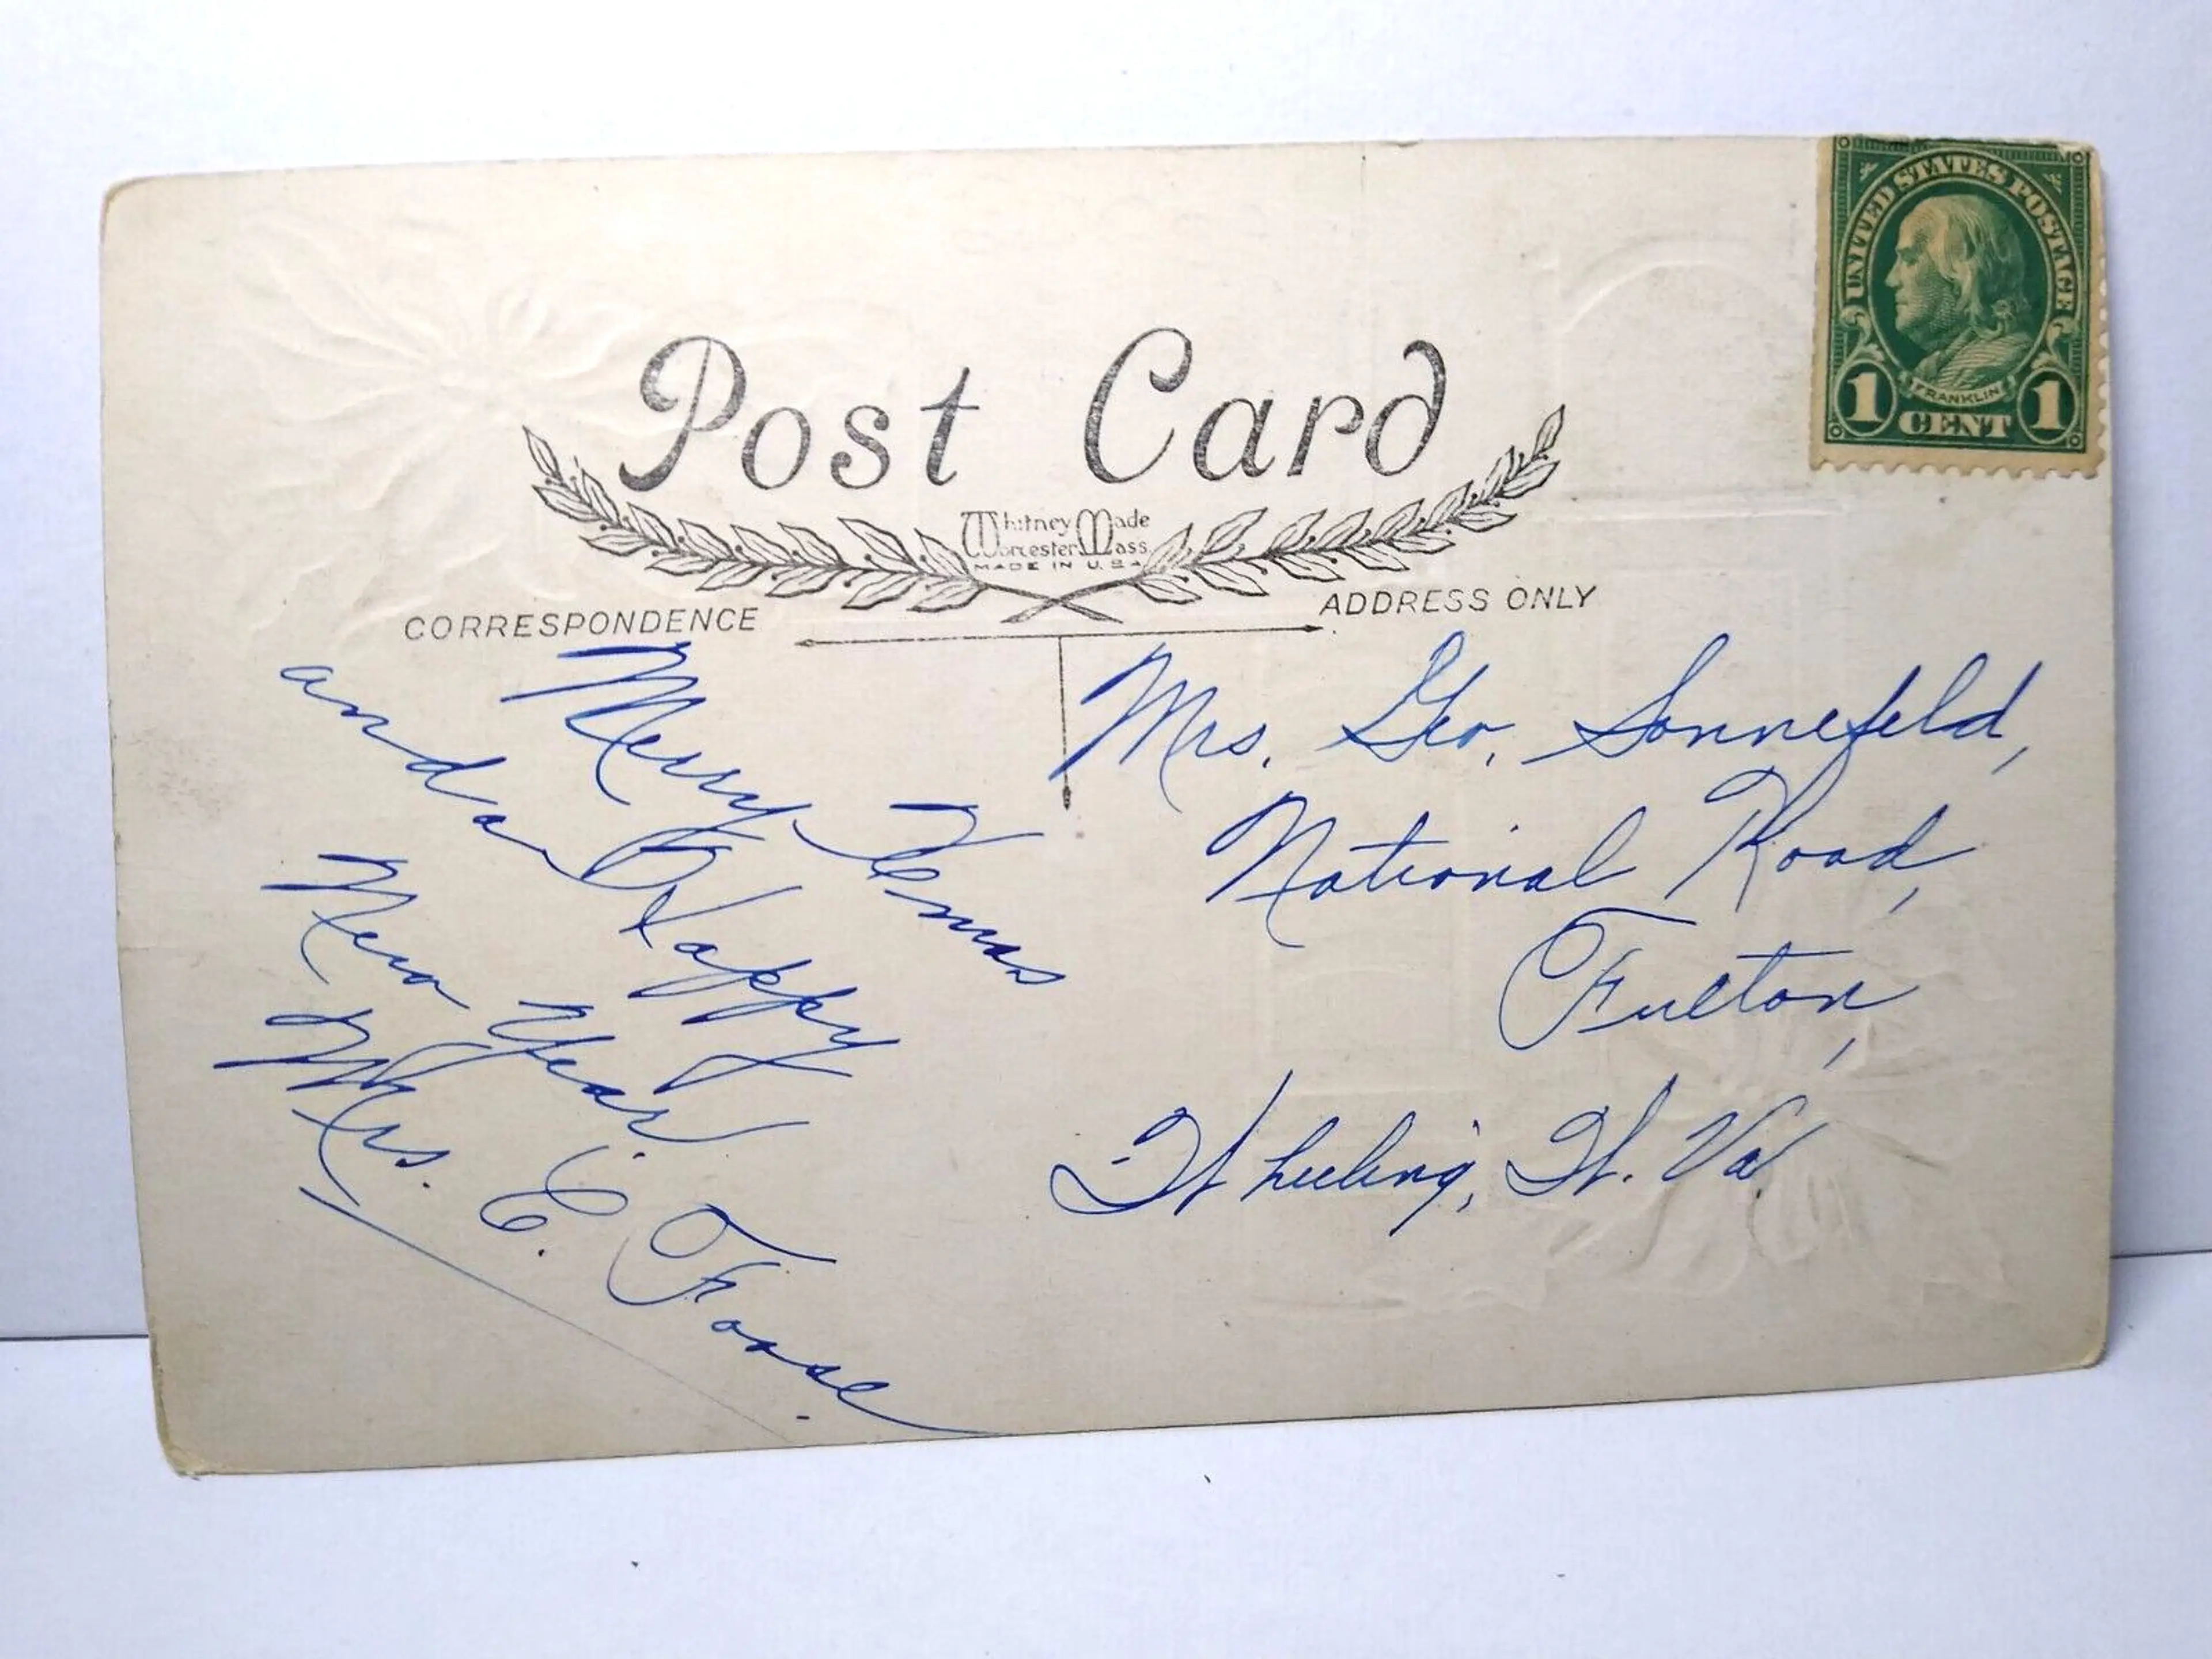 Post Card
Whitney Made
Worcester, Mass.
MADE IN U.S.A.
CORRESPONDENCE
ADDRESS ONLY
UNITED STATES POSTAGE
FRANKLIN
1 CENT 1
Merry Xmas
and a Happy
New Year.
Mrs. E. Foose.
Mrs. Geo. Sonnefeld,
National Road,
Fulton,
Wheeling, W. Va.